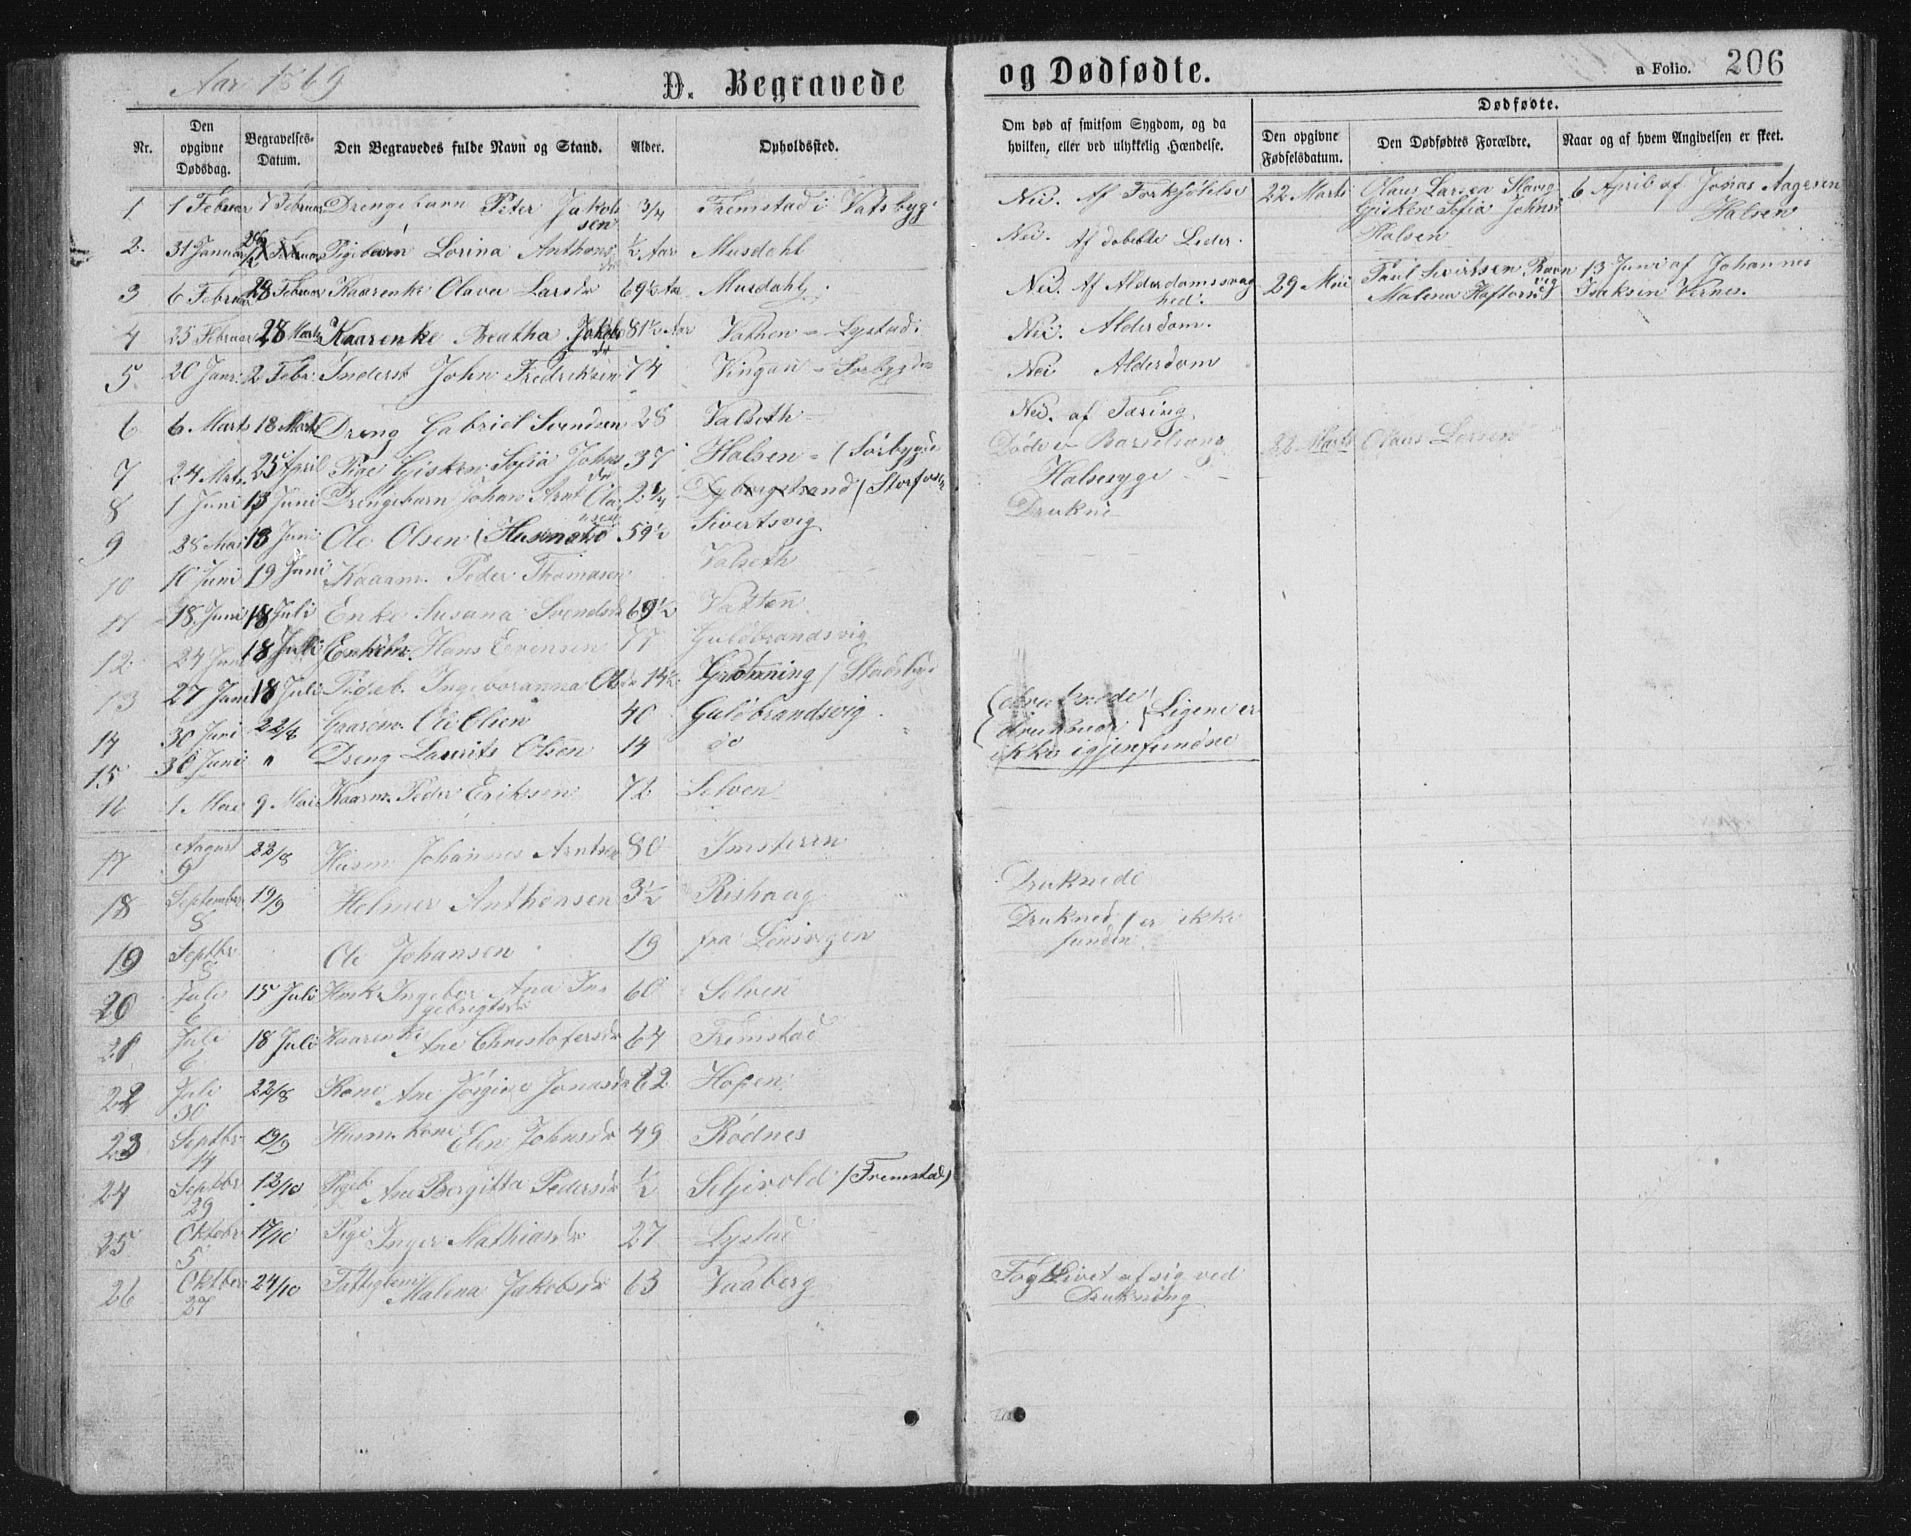 Aar 1869
D. Begravede og Dødfødte.
a Folio. 206
Nr.
Den opgivne Dødsdag.
Begravelses-Datum.
Den Begravedes fulde Navn og Stand.
Alder.
Opholdssted.
Om død af smitsom Sygdom, og da hvilken, eller ved ulykkelig Hændelse.
Dødfødte.
Den opgivne Fødselsdatum.
Den Dødfødtes Forældre.
Naar og af hvem Angivelsen er skeet.
1 1 Februar Februar Drengebarn Peter Jakob 3/4 Fremstad i Vatsbygd Nei. Af Forkjölelse 22 Marts Olaus Larsen Slavig 6 April af Jonas Aagesen
sen Gjerken Sofia Johnsd Halsen
Halsen
2. 31 Januar 28/2 Pigebarn Lorina Anthons ½ Aar Musdahl Nei. Af dobelte Leder.
dr
3 6 Februar 28 Februar Kaarenke Olava Larsdr 69½ Aar Musdahl. Nei. Af Alderdomssvag 29 Mai Paul Sivertsen Ravn 13 Juni af Johannes
hed. vig
Malena Haftorsd Isaksen Vernes.
4 25 Februar 28 Marts Kaarenke Beatha Jakobs 81½ Aar Vathen - Lystad Nei. Alderdom.
dr
5 20 Janr. 2 Febr. Inderst John Fredriksen 74 Vingan - Sørbygden Nei Alderdom
6 6 Marts 18 Marts Dreng Gabriel Svendsen 28 Valseth Nei. af Tæring
7 24 Mrts 25 April Pige Gjerken Sofia Johns 37 Halsen - (Sørbygde Döde i Barselseng 22 Marts Olaus Larsen
dr Halssyge
8 1 Juni 13 Juni Drengebarn Johan Arnt Ola 2¼ Dybvigstrand (Storfosen
nsen
9 28 Mai 13 Juni Ole Olsen (Husmand 59½ Sivertsvig Drukne
10 10 Juni 19 Juni Kaarm. Peder Thomasen Valseth
11 18 Juni 18 Juli Enke Susana Svendsdr 69½ Vatten
12 24 Juni 18 Juli Enkem. Hans Evensen 77 Guldbrandsvig
13 27 Juni 18 Juli Pigeb. Ingeboranna Ols dr 14½ Grønning (Stadsbyg
14 30 Juni 22/8 Gaardm. Ole Olsen 40 Guldbrandsvig druknede
15 30 Juni " Dreng Laurits Olsen 14 do druknede Ligene er
ikke igjenfundne
16 1 Mai 9 Mai Kaarm. Peder Eriksen 72 Selven
17 August 9 22/8 Husm Johannes Arntsen 80 Imsteren
18 September 8 19/9 Helmer Anthonsen 3½ Rishaug Druknede
19 Septbr 8 Ole Johansen 19 fra Lensvigen Druknede / er ikke
funden.
20 Juli 6 15 Juli Husk. Ingebor Ana In 60 Selven
gebrigtsdr
21 Juli 6 18 Juli Kaarenke Ane Christofersdr 64 Fremstad
22 Juli 30 22/8 Kone Ane Jörgine Jonasdr 62 Hopen
23 Septbr 14 19/9 Husm. Kone Elen Johnsdr 49 Rödnes
24 Septbr 29 12/10 Pigeb Ane Bergitta Pedersdr ½ Seljevold (Fremstad)
25 Oktobr 5 17/10 Pige Inger Mathiasdr 27 Lystad
26 Oktber 27 24/10 Fattiglem Malena Jakobsdr 63 Vaaberg Tog Livet af sig ved
Drukning